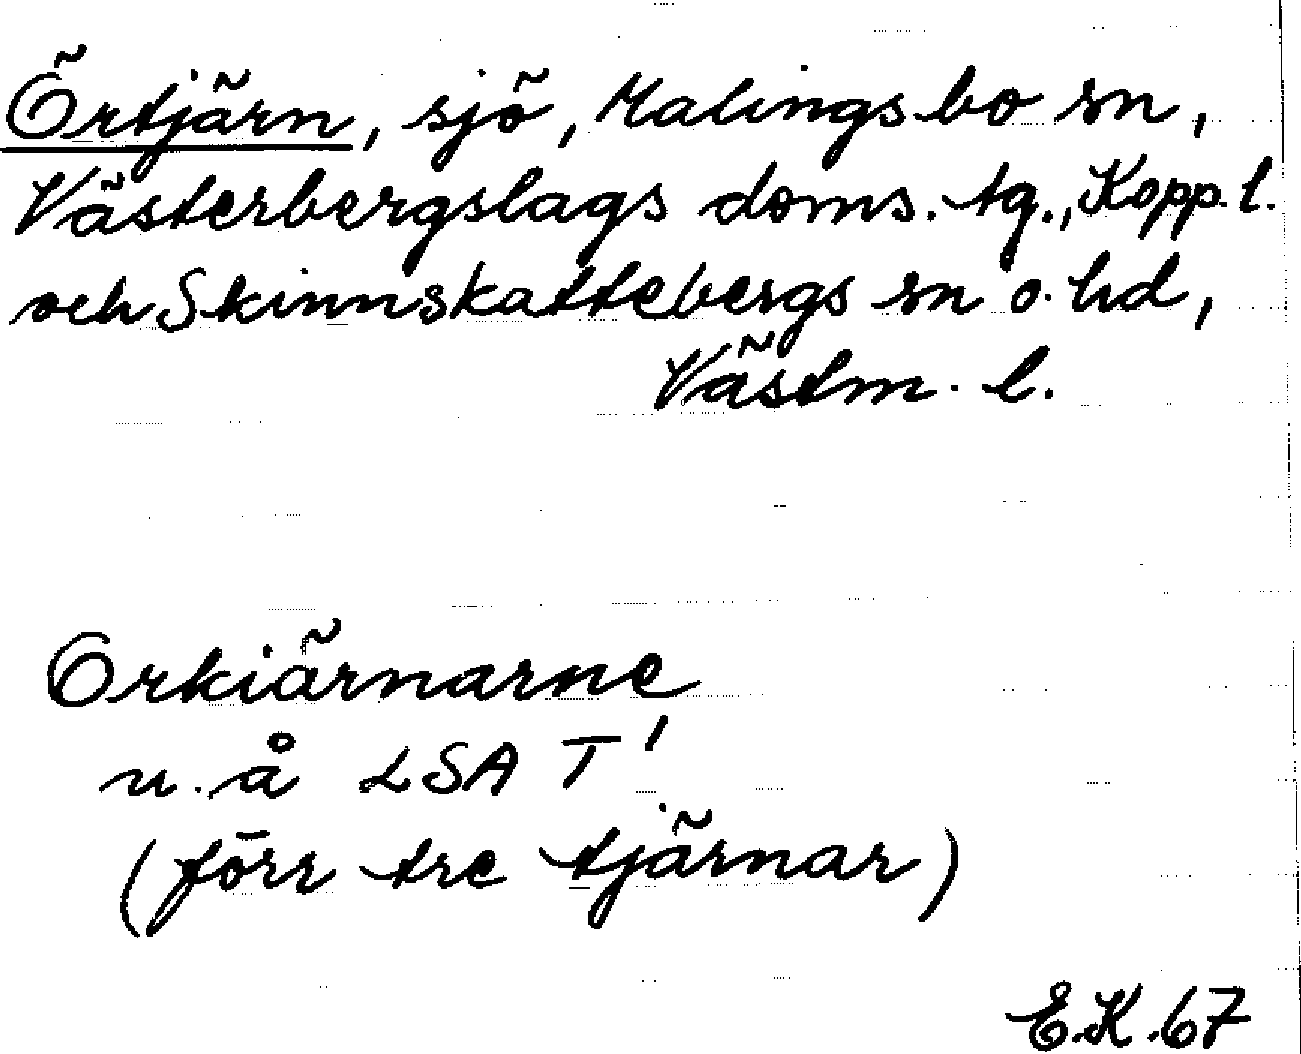 Örtjärn, sjö, Malingsbo sn,
Västerbergslags doms. tg., Kopp. l.
och Skinnskattebergs sn o. hd,
Västm. l.
Orkiärnarne
u. å LSA T'
(förr tre tjärnar)
E.K. 67